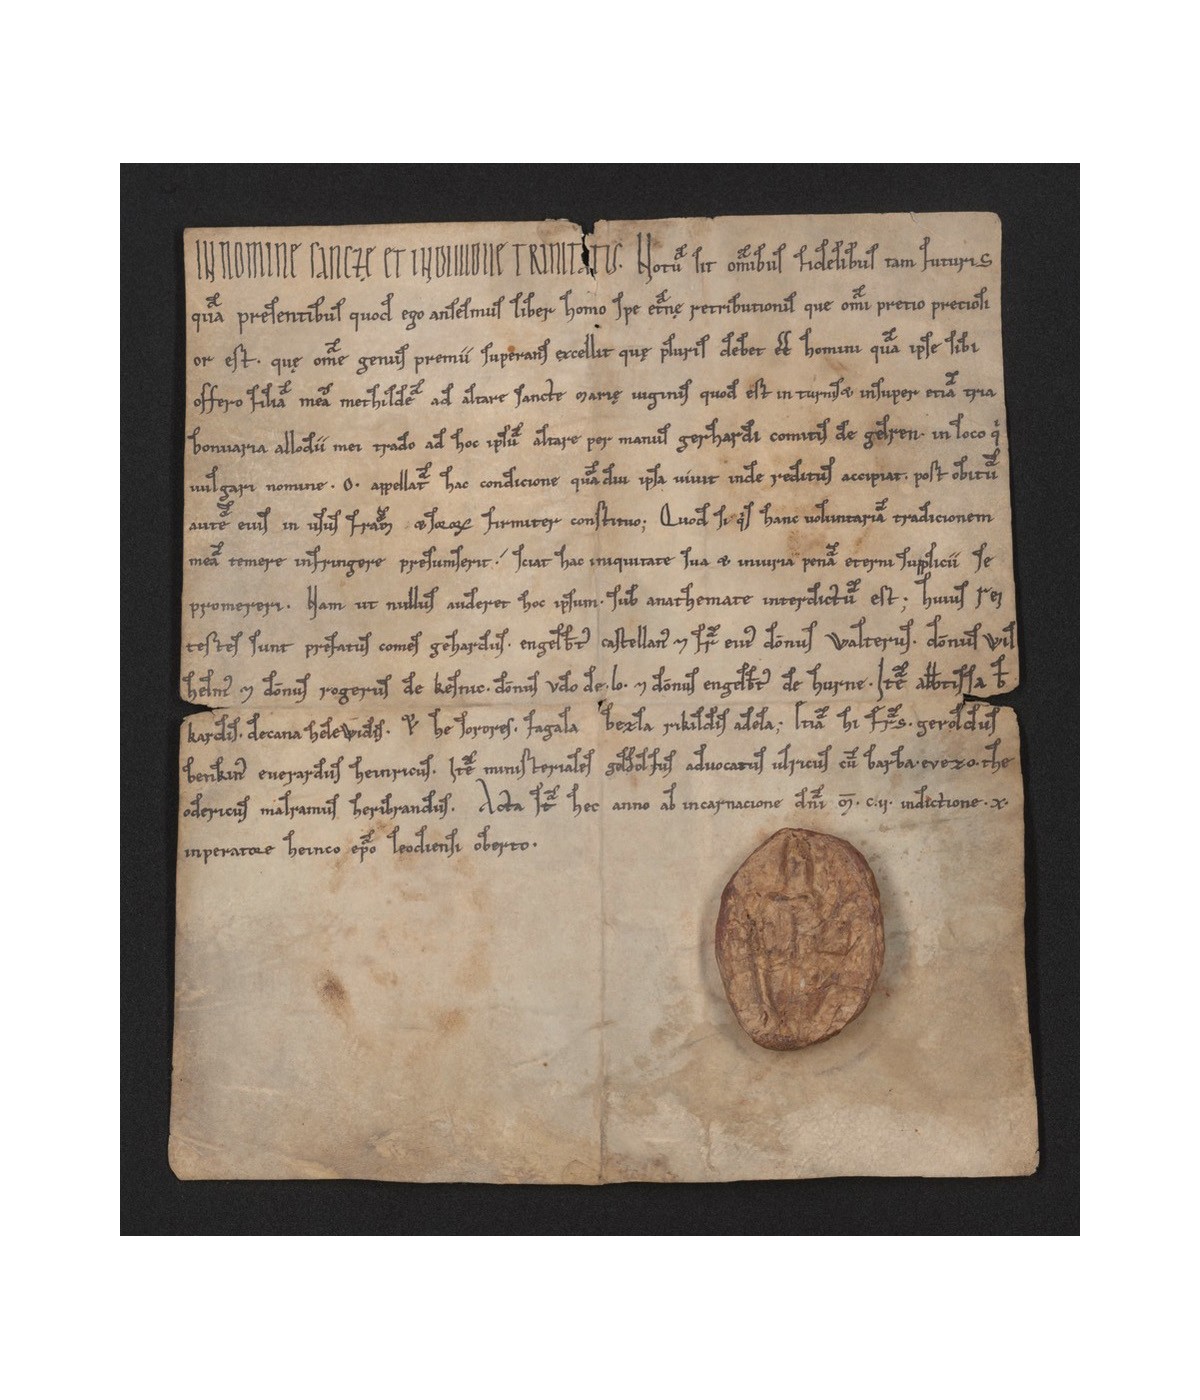 IN NOMINE SANCTĘ ET INDIVIDUE TRINITATIS. Notū sit om̄ibus fidelibus tam futuris
quā presentibus quod ego anselmus liber homo spe et̄nę retributionis que om̄i pretio preciosi
or est. quę om̄e genus premii superans excellit quę pluris debet eē homini quā ipse sibi
offero filiā meā methildē ad altare sancte marię uirginis quod est in turnis & insuper etiā tria
bonuaria allodii mei trado ad hoc ipsū altare per manus gerhardi comitis de gelren. in loco q̇
uulgari nomine. o. appellat̄ hac condicione quādiu ipsa uiuit inde reditus accipiat. post obitū
autē eius in usus fratr̄ & soror firmiter constituo; Quod si q̇s hanc uoluntariā tradicionem
meā temere infringere presumserit! sciat hac iniquitate sua & iniuria penā eterni supplicii se
promereri. Nam ut nullus auderet hoc ipsum. sub anathemate interdictū est; huius rei
testes sunt prefatus comes gehardus. engelb̄t castellan᾽ ⁊ fr̄ ei᾽ dōnus walterus. dōnus wil
helm᾽ ⁊ dōnus rogerus de kesnic. dōnus udo de. lo. ⁊ dōnus engelb̄t᾽ de hurne. Itē abbtissa b̄
kardis. decana helewidis. & he sorores. fagala bezla rikildis adela; Itiā hi fr̄s. geroldus
benkin᾽ euerardus heinricus. Itē ministeriales godolfus aduocatus ulricus cū barba. evezo. the
odericus malramus heribrandus. Acta st̄ hec anno ab incarnacione dn̄i m̄. c.ii. indictione. x.
inperatore heinco ep̄o leodiensi oberto.